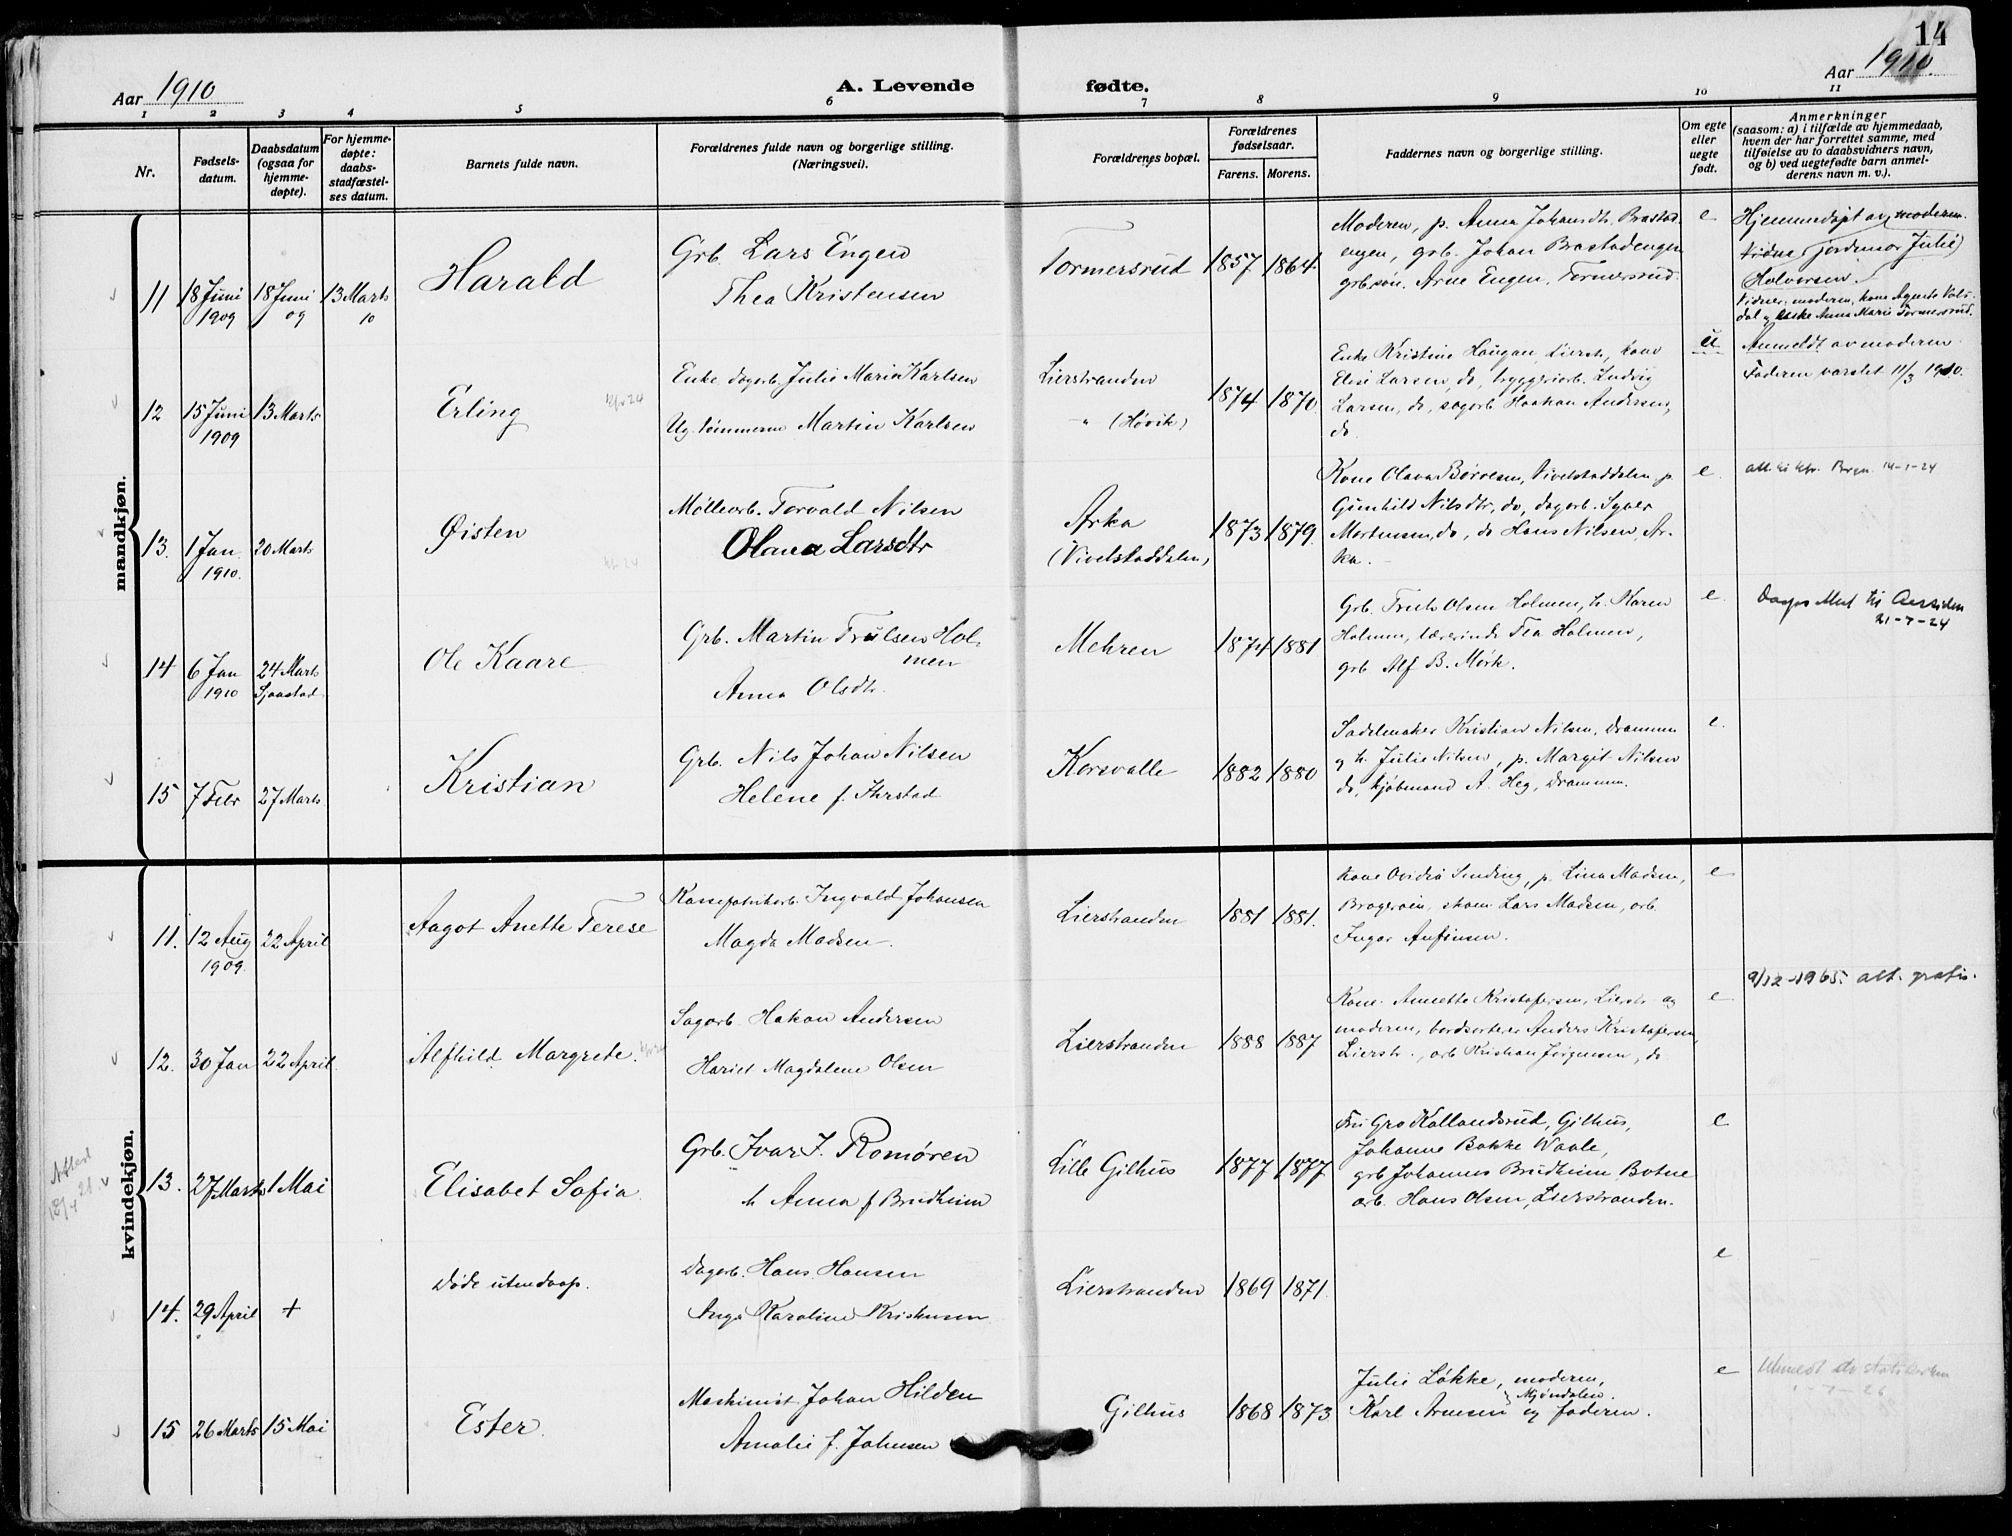 14
Aar 1910
A. Levende
fødte.
Aar 1910.
1 2 3 4 5 6 7 8 9 10 11
Nr.
Fødsels-
datum.
Daabsdatum
(ogsaa for
hjemme-
døpte).
For hjemme-
døpte:
daabs-
stadfæstel-
ses datum.
Barnets fulde navn.
Forældrenes fulde navn og borgerlige stilling.
(Næringsvei).
Forældrenes bopæl.
Forældrenes
fødselsaar.
Farens. Morens.
Faddernes navn og borgerlige stilling.
Om egte
eller
uegte
født.
Anmerkninger
(saasom: a) i tilfælde av hjemmedaab,
hvem der har forrettet samme, med
tilføielse av to daabsvidners navn,
og b) ved uegtefødte barn anmel-
derens navn m. v.).
mandkjøn.
11
18 Juni
1909
18 Juni
09
13 Marts
10
Harald
Grb. Lars Engen
Thea Kristensen
Tormersrud
1857 1864
Moderen, p. Anna Johansdtr Brastad
engen, grb. Johan Brastadengen
grbsøn. Arne Engen, Tormersrud.
e
Hjemmedøpt av moderen.
Vidne (jordemor Julie)
Halvorsen.
Vidner: moderen, kone Agnete Vals-
dal og Anna Marie Tormersrud.
12
15 Juni
1909
13 Marts
Erling
Enke, dagarb. Julie Marie Karlsen
Ug. tømmerm Martin Karlsen
Lierstranden
" (Høvik)
1874 1870
Enke Kristine Haugan, Lierstr, kone
Elise Larsen, do, bryggeriarb. Ludvig
Larsen, do, sagarb. Haakon Andersen,
do.
u
Anmeldt av moderen.
Faderen varslet 11/3 1910.
13.
1 Jan.
1910.
20 Marts
Øisten
Møllearb. Torvald Nilsen
Olava Larsdtr
Arka
(Vivelstaddalen)
1873 1879.
Kone Olava Børresen, Vivelstaddalen, p.
Gunhild Nilsdtr, do, dagarb. Syver
Mortensen, do, do Hans Nilsen, Ar-
ka.
e
14-1-24
14
6 Jan
1910
24 Marts
Sjaastad
Ole Kaare
Grb. Martin Trulsen Hol-
men
Anna Olsdtr.
Mehren
1874 1881
Grb. Truls Olsen Holmen, h. Karen
Holmen, lærerinde Tea Holmen,
grb Alf B. Mørk.
e.
21-7-24
15
7 Febr
27 Marts
Kristian
Grb. Nils Johan Nilsen
Helene f. Ihrstad
Korsvalle
1882 1880
Sadelmaker Kristian Nilsen, Drammen
og h. Julie Nilsen, p. Margit Nilsen
do, kjøbmand A. Heg, Drammen.
e.
kvindekjøn.
11.
12 Aug
1909.
22 April
Aagot Anette Terese
Kassefabrikarb. Ingvald Johansen
Magda Madsen.
Lierstranden
1881 1881.
Kone Ovidia Sinding, p. Lina Madsen,
Brageroen, skom Lars Madsen, arb.
Ingar Anfinsen.
e
12.
30 Jan
22 April.
Alfhild Margrete.
Sagarb. Hakon Andersen
Hariet Magdalene Olsen
Lierstranden
1888 1887
Kone Annette Kristofersen, Lierstr. og
moderen, bordsorterer Anders Kristofersen,
Lierstr., arb Kristian Jørgensen, do
e
9/12-1965. att. gratis.
13.
27 Marts
1 Mai
Elisabet Sofia
Grb. Ivar I. Romøren
h Anna f Brudheim
Lille Gilhus
1877 1877
Fru Gro Kallandsrud, Gilhus,
Johanne Bakke Waale,
grb Johannes Brudheim Botne
arb. Hans Olsen, Lierstranden.
e
14.
29 April
+
Døde uten daap.
Dagarb. Hans Hansen
Inga Karoline Kristensen
Lierstranden
1869 1871.
e
15
26 Marts
15 Mai
Ester.
Maskinist Johan Hilden
Amalie f. Johnsen
Gilhus
1868 1873
Julie Løkke, moderen,
Mjøndalen.
Karl Arnesen og faderen.
e